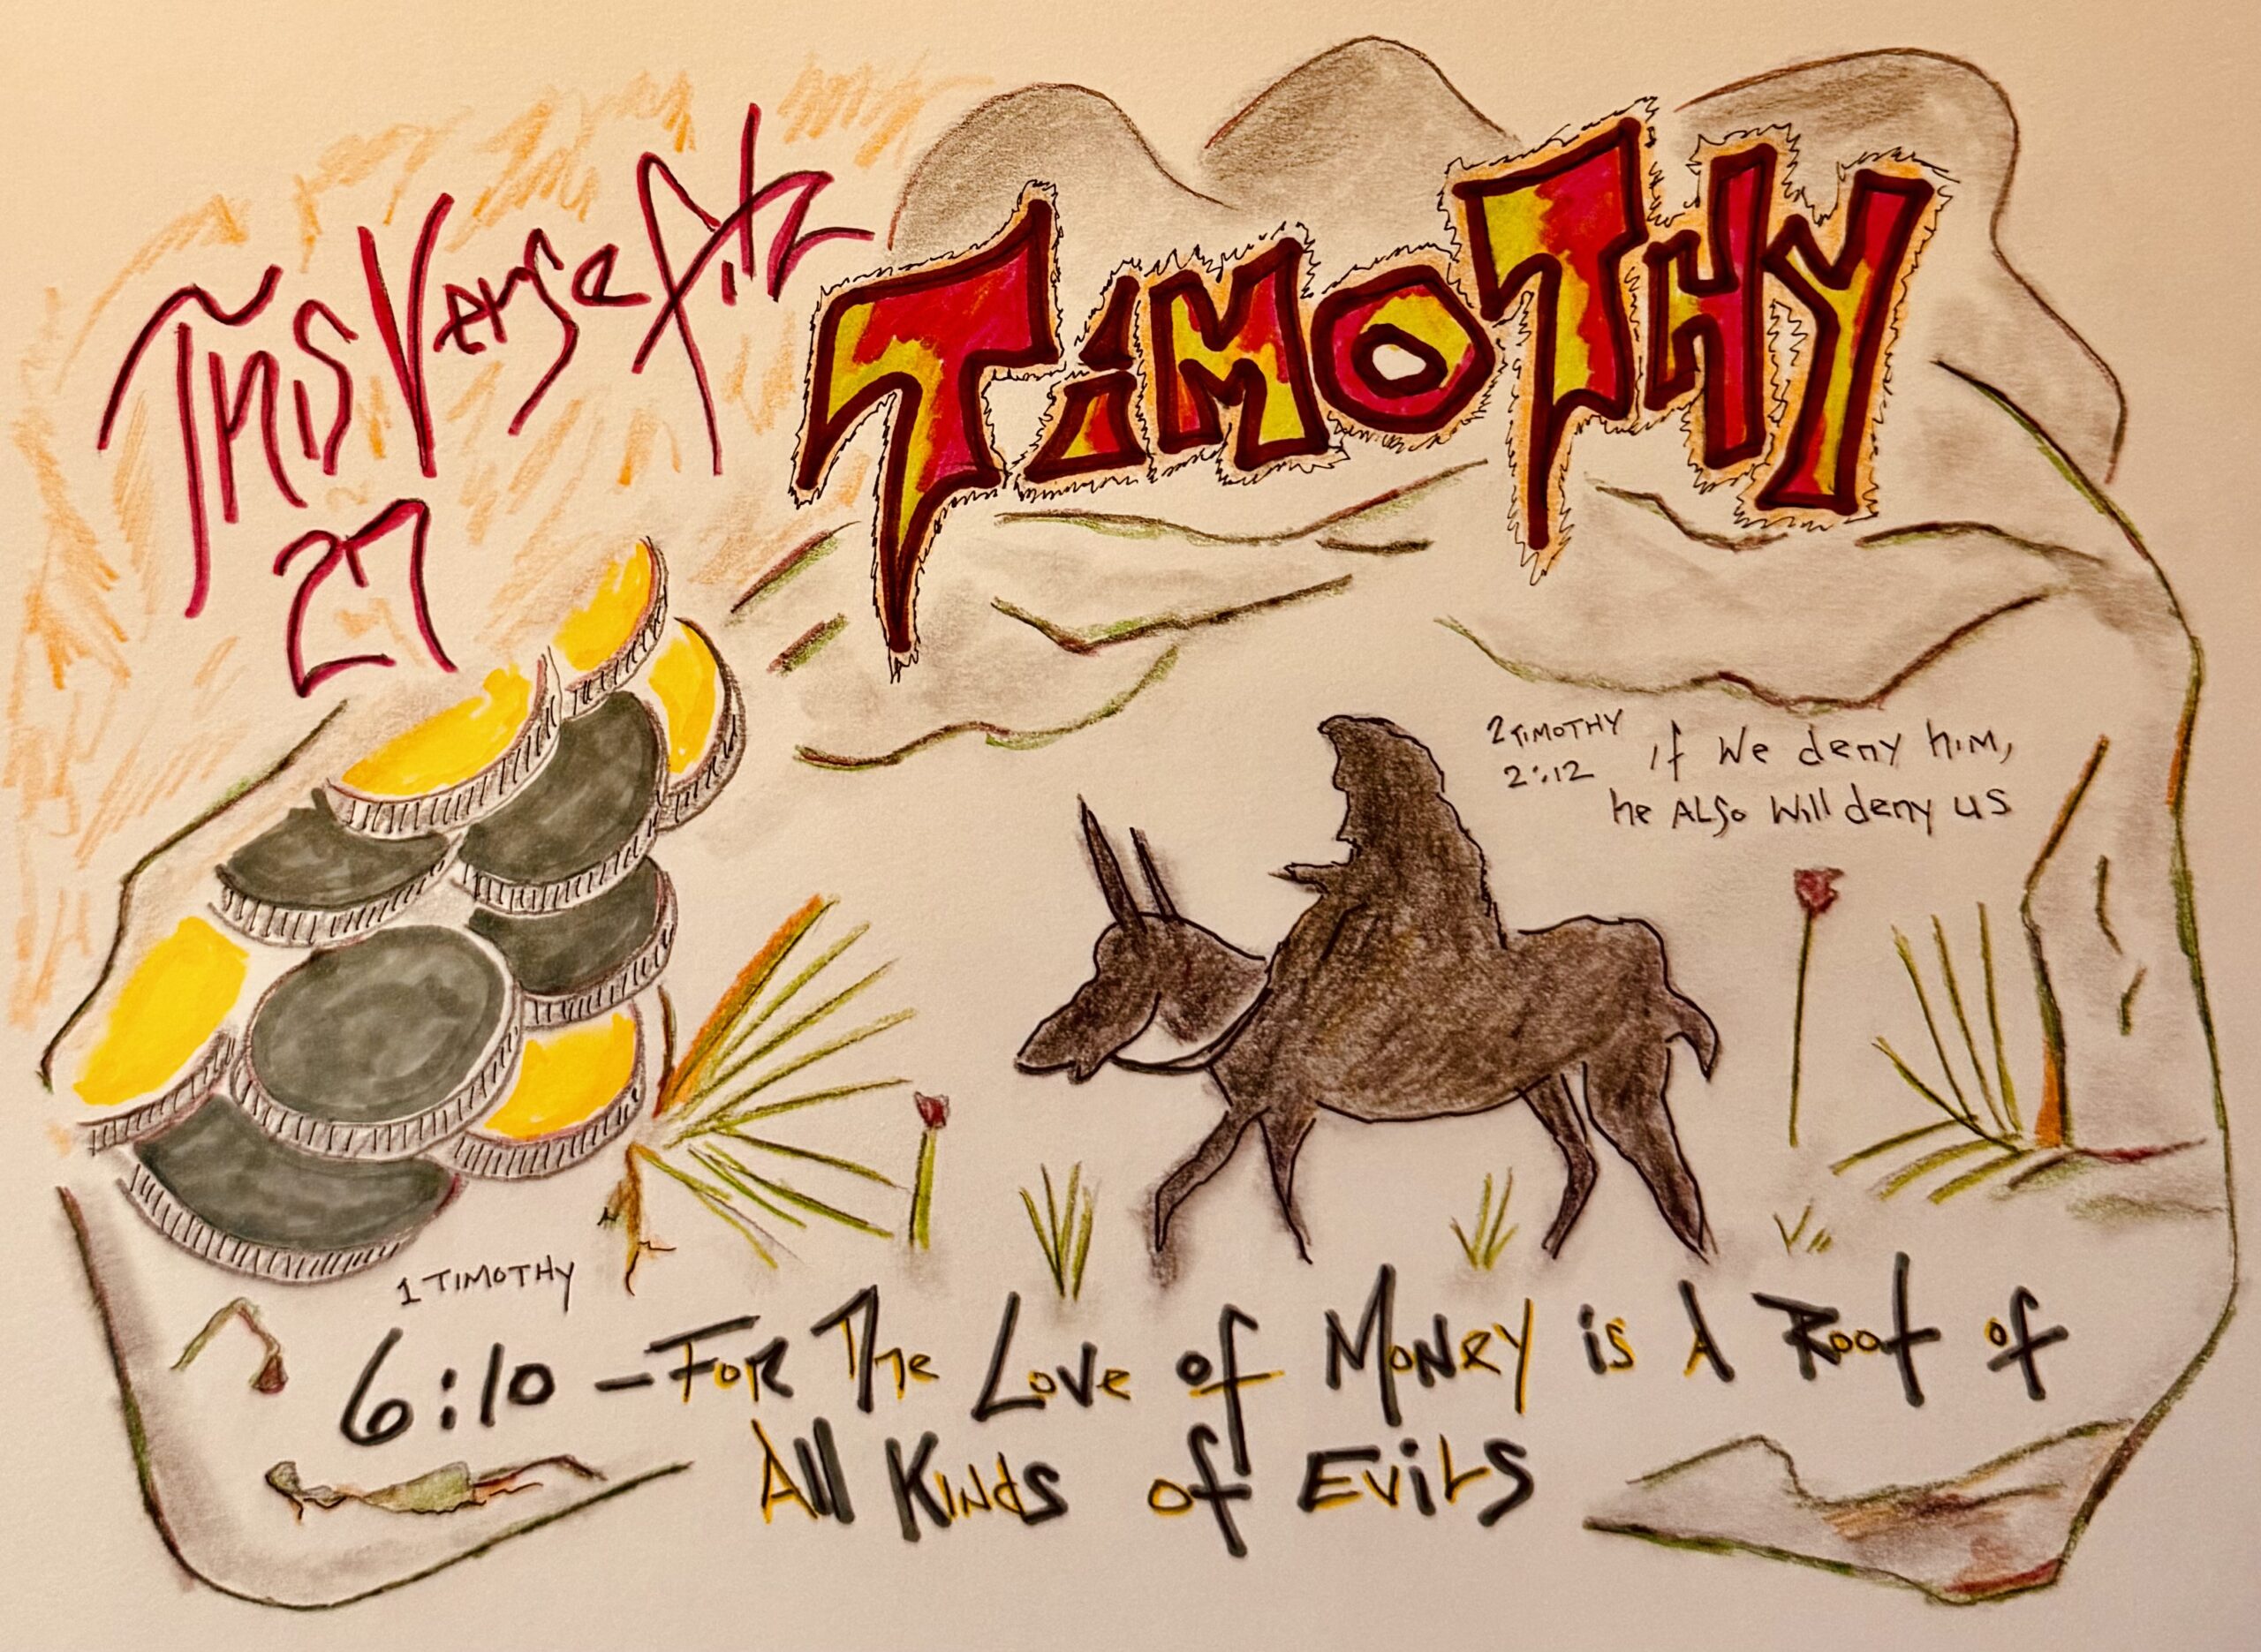 THis Verse fitz
27
TiMOTHY
2 TiMOTHY
2:12
if We deny him,
he ALSo Will deny us
1 TIMOTHY
6:10 - FoR The Love of MoNey is A Root of
All KiNds of EviLS